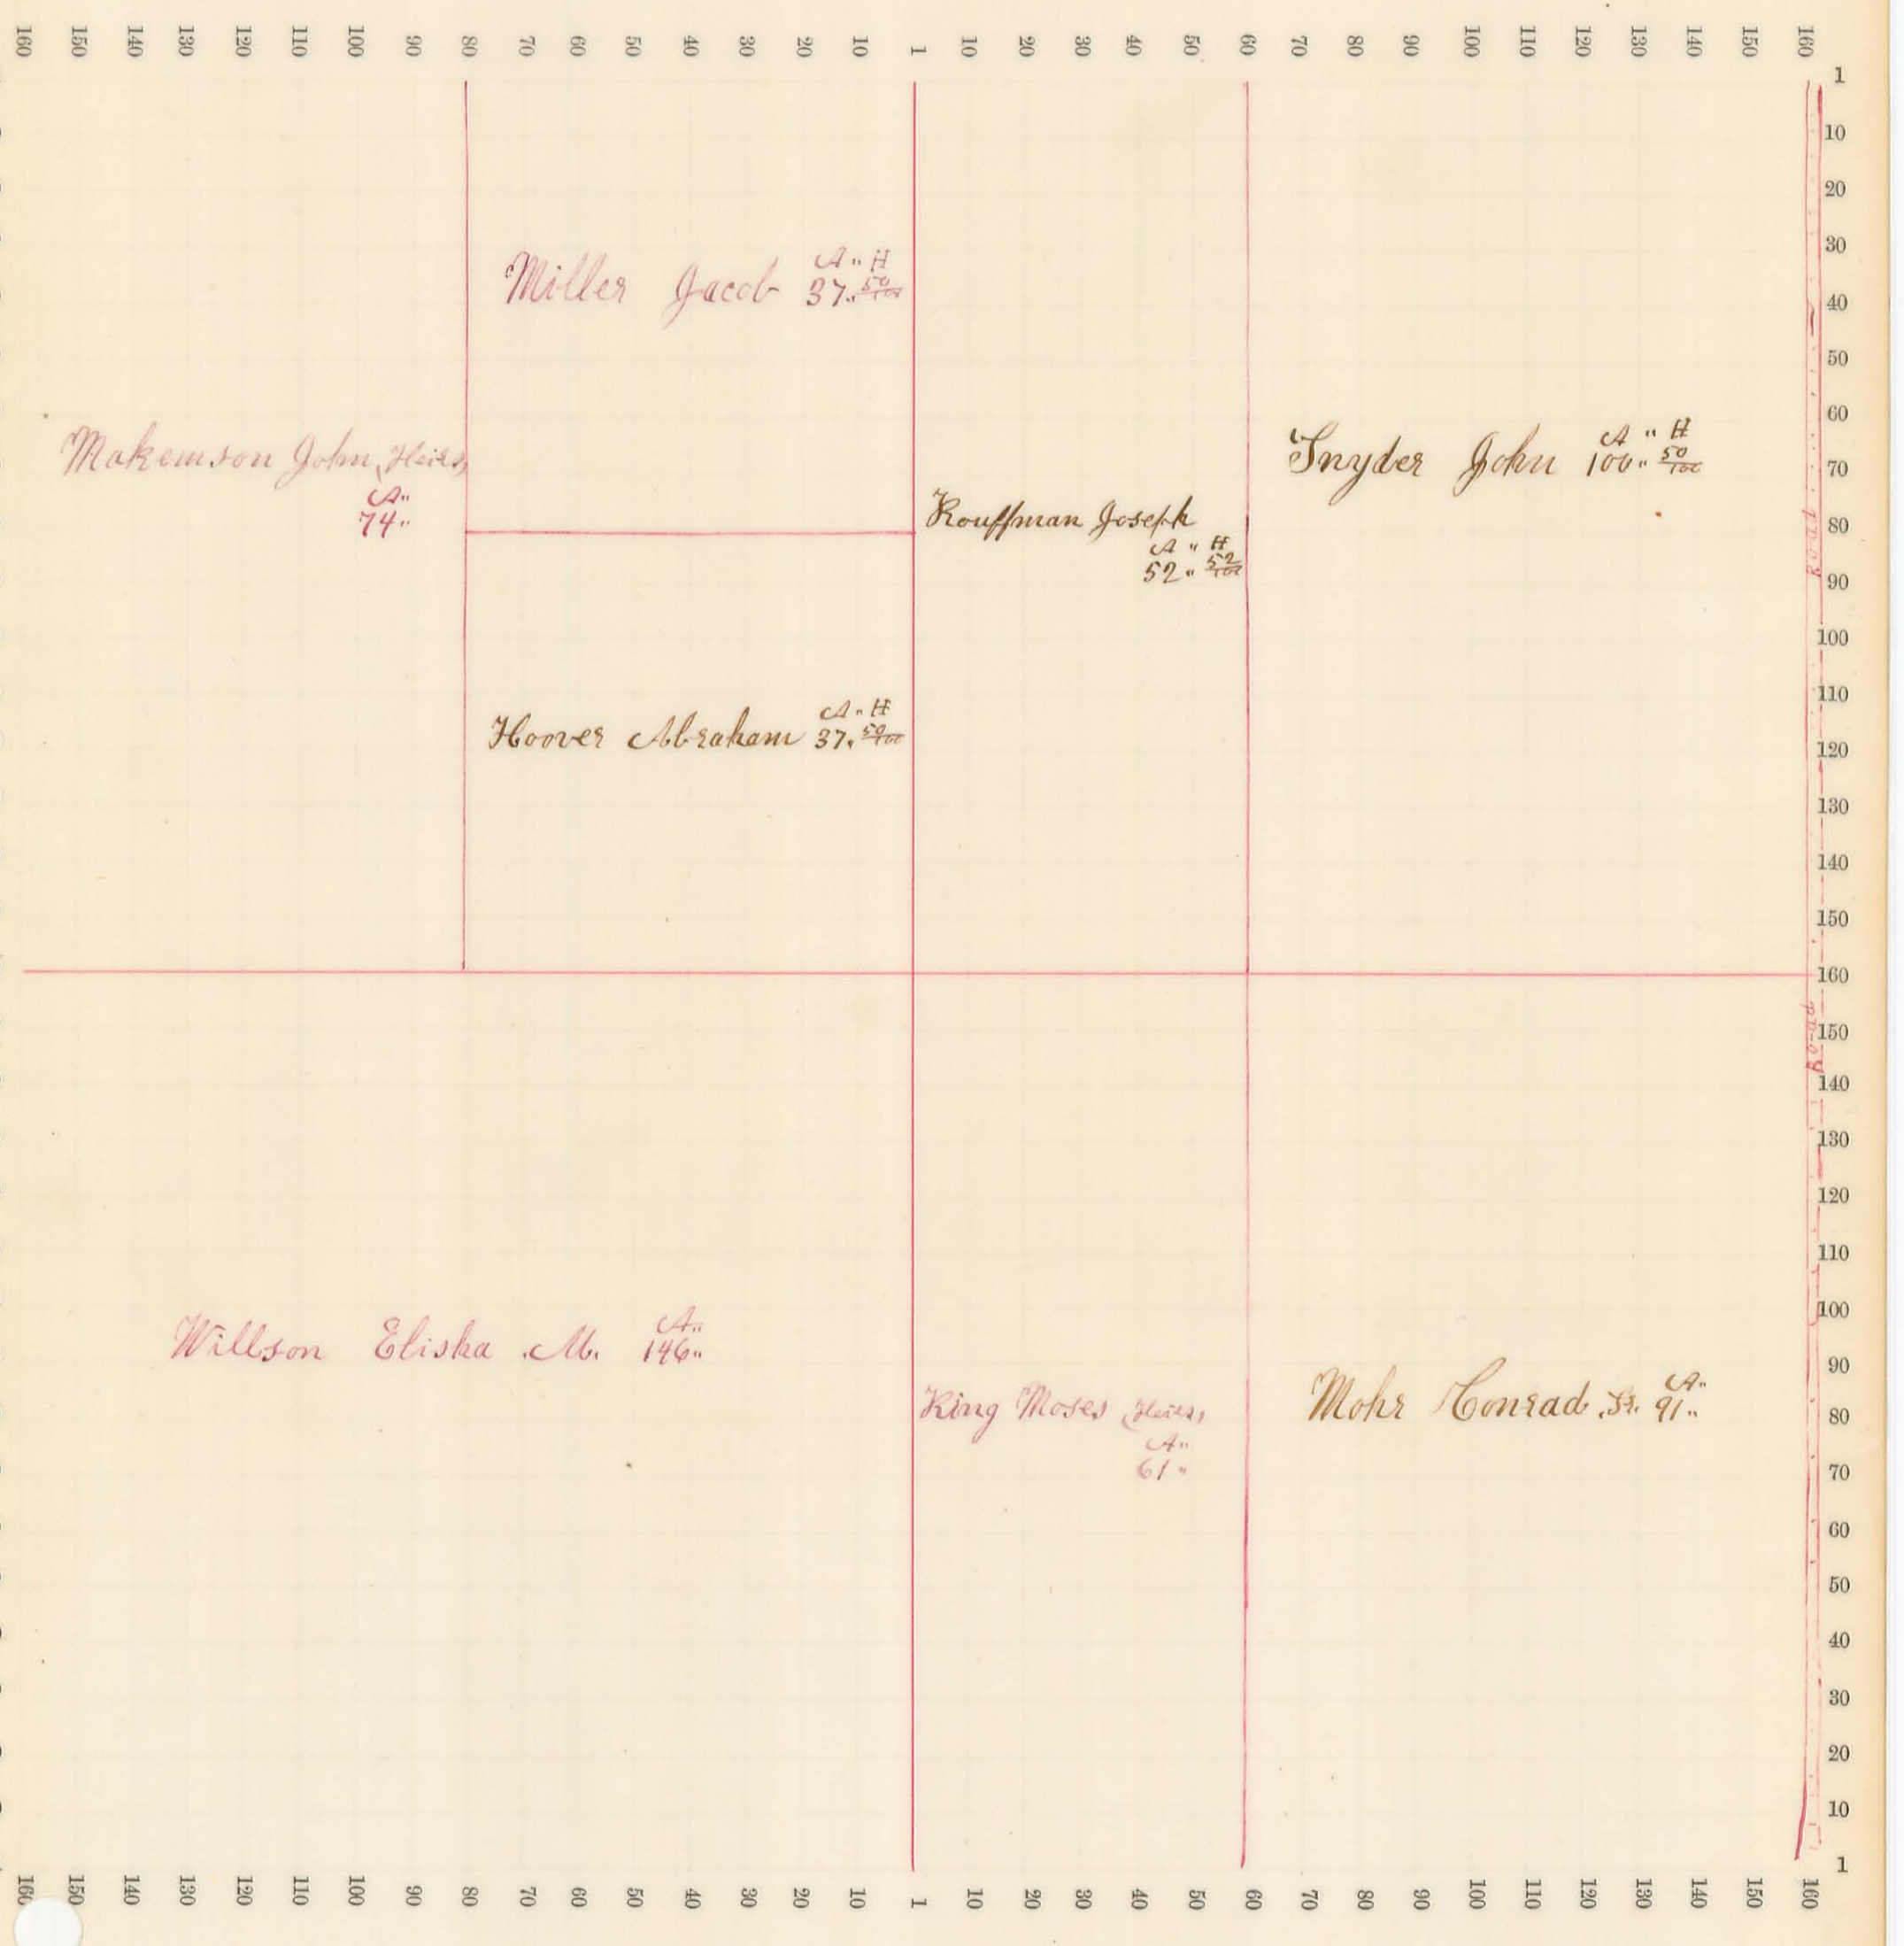 160 150 140 130 120 110 100 90 80 70 60 50 40 30 20 10 1 10 20 30 40 50 60 70 80 90 100 110 120 130 140 150 160
1
10
20
30
40
50
60
70
80
90
100
110
120
130
140
150
160
150
140
130
120
110
100
90
80
70
60
50
40
30
20
10
1
A" H
Miller Jacob 37" 50/100
Makemson John, Heirs,
A"
74"
A " H
Snyder John 100" 50/100
Kouffman Joseph
A " H
52" 52/100
A" H
Hoover Abraham 37" 50/100
Road
Road
A"
Willson Elisha M. 146"
King Moses, Heirs,
A"
61"
A"
Mohr Conrad Sr. 91"
160 150 140 130 120 110 100 90 80 70 60 50 40 30 20 10 1 10 20 30 40 50 60 70 80 90 100 110 120 130 140 150 160